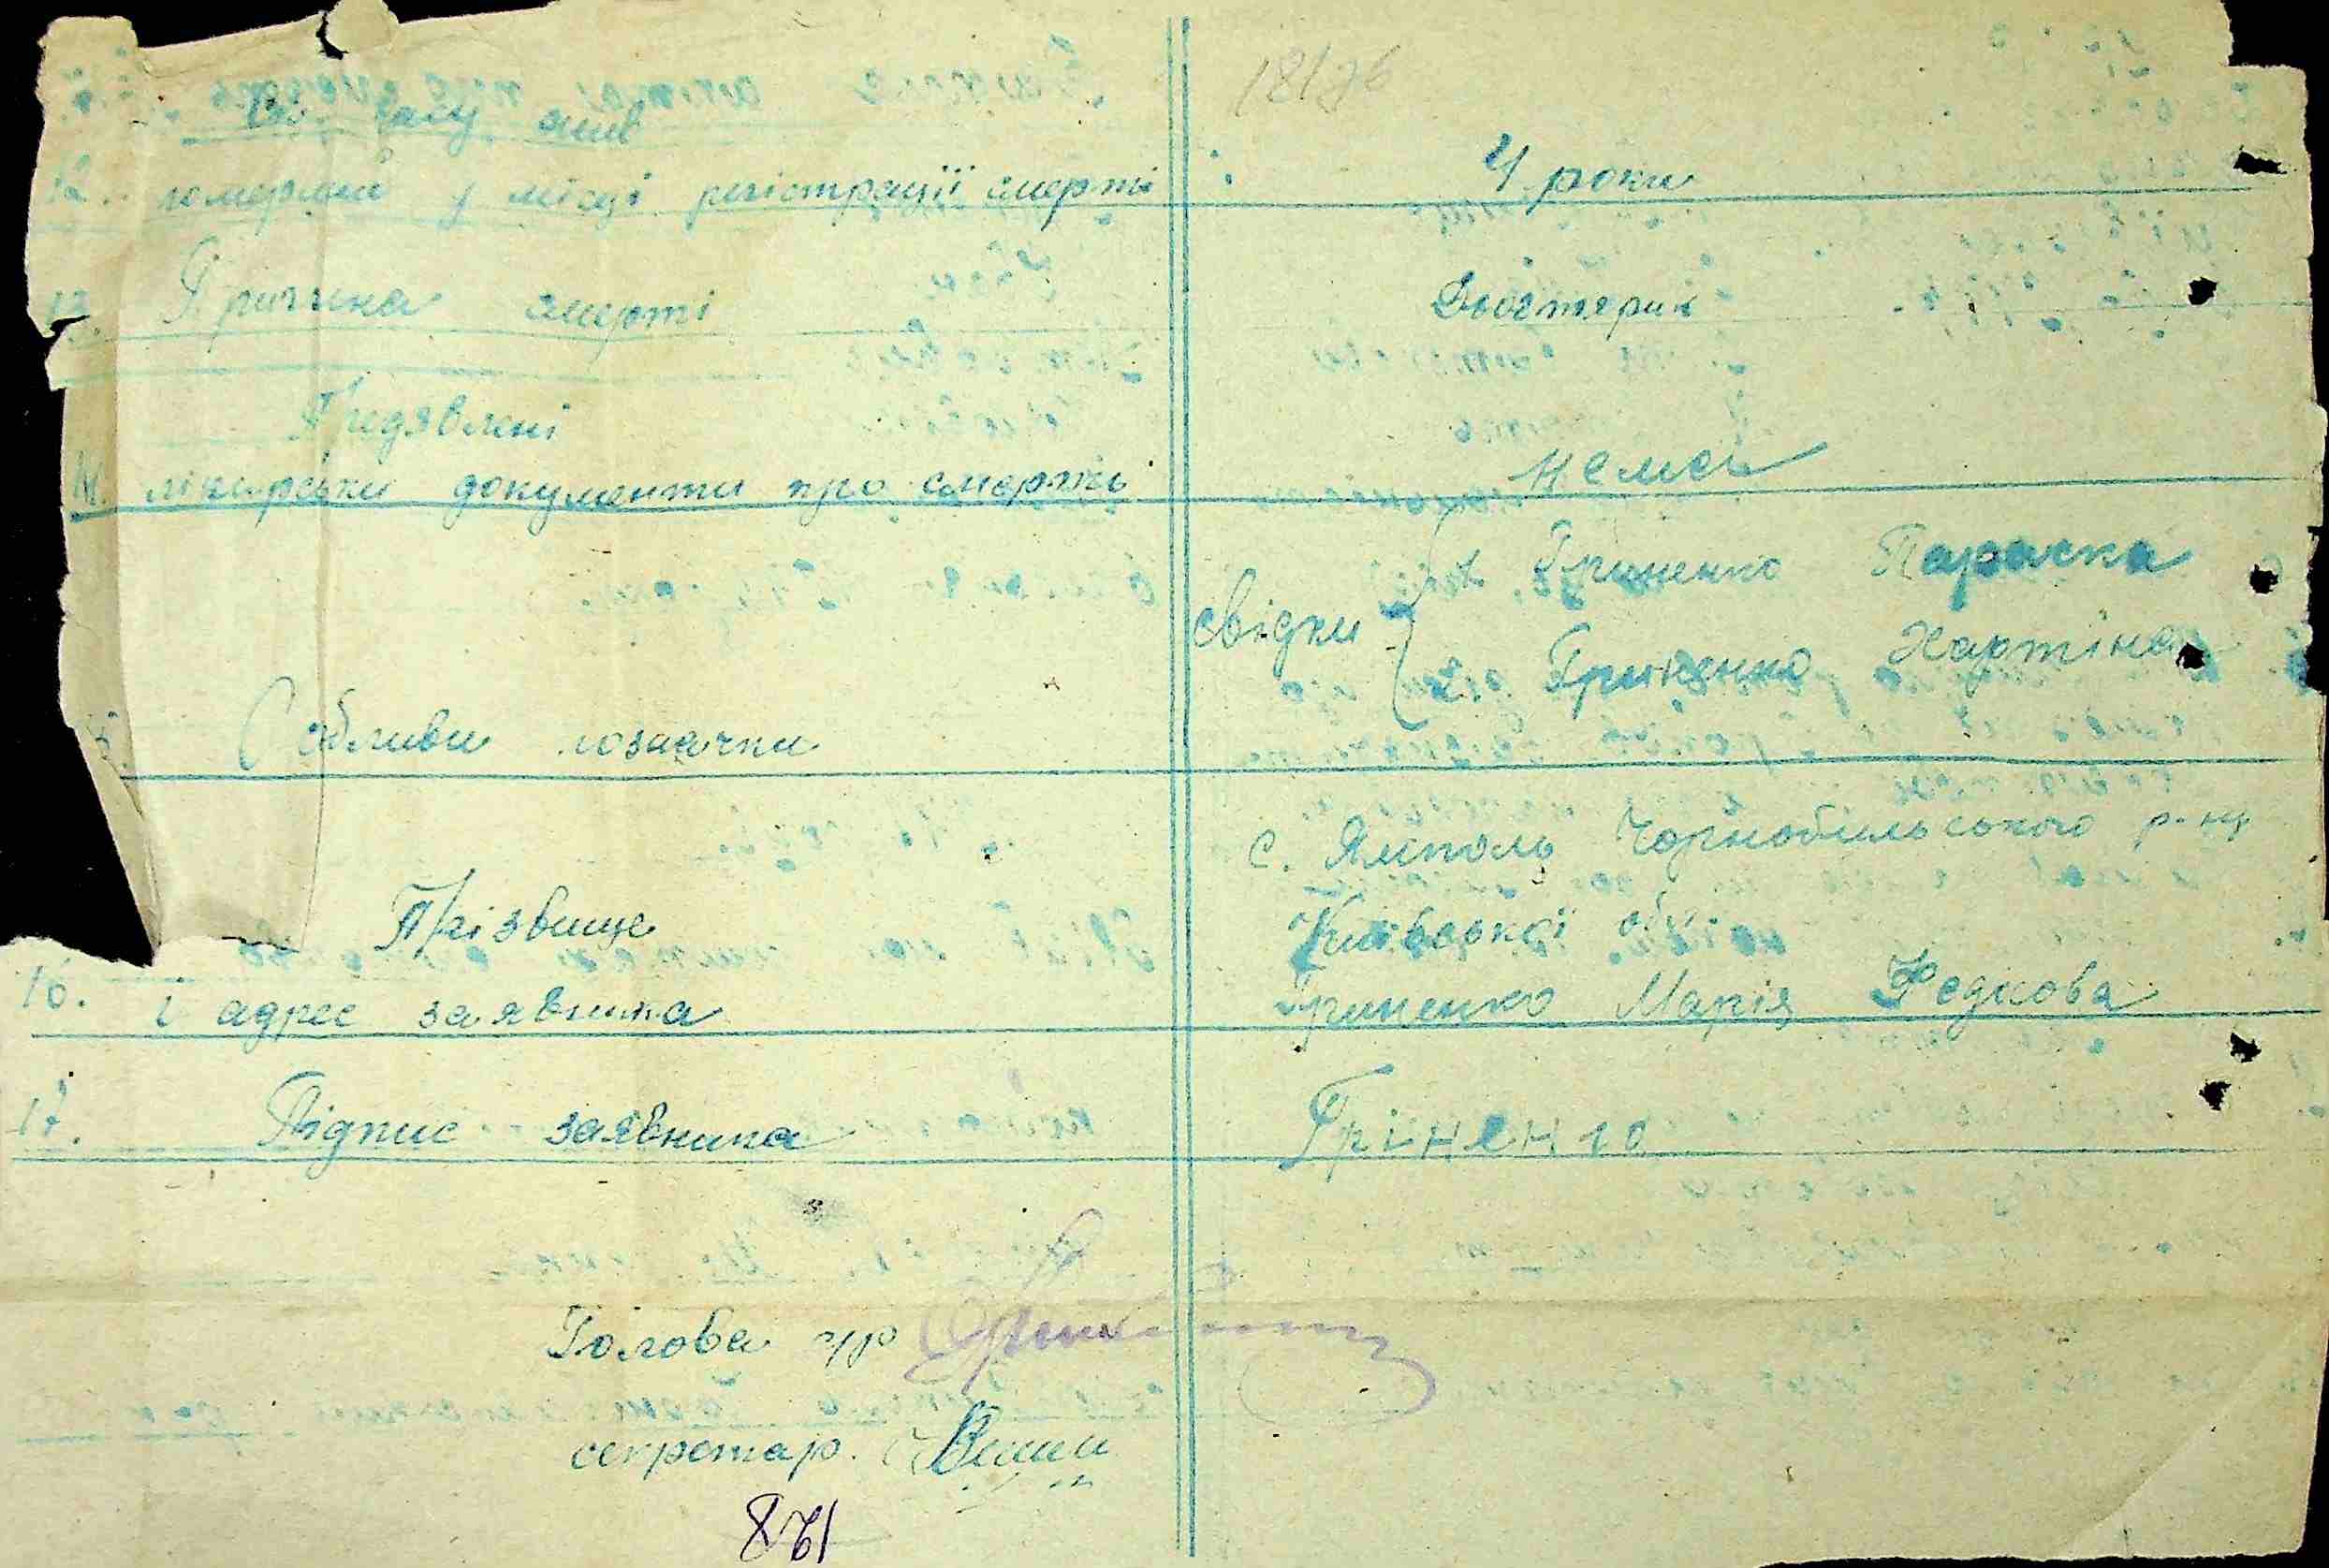 часу жив
12. померлий у місці регістрації смерті
4 роки
13. Причина смерті
Дієхтерик
Предявлені
14. лікарськи документи про смерть
немеь
свідки
1. Гриненко Параска
2. Гриненко Хартіна
Собливи позначки
Прізвище
16. і адрес заявника
с. Ямполь Чорнобильського р-ну
Київської обл.
Гриненко Марія Федкова
17. Підпис заявника
Гріненко
Голова с/р
секретар.